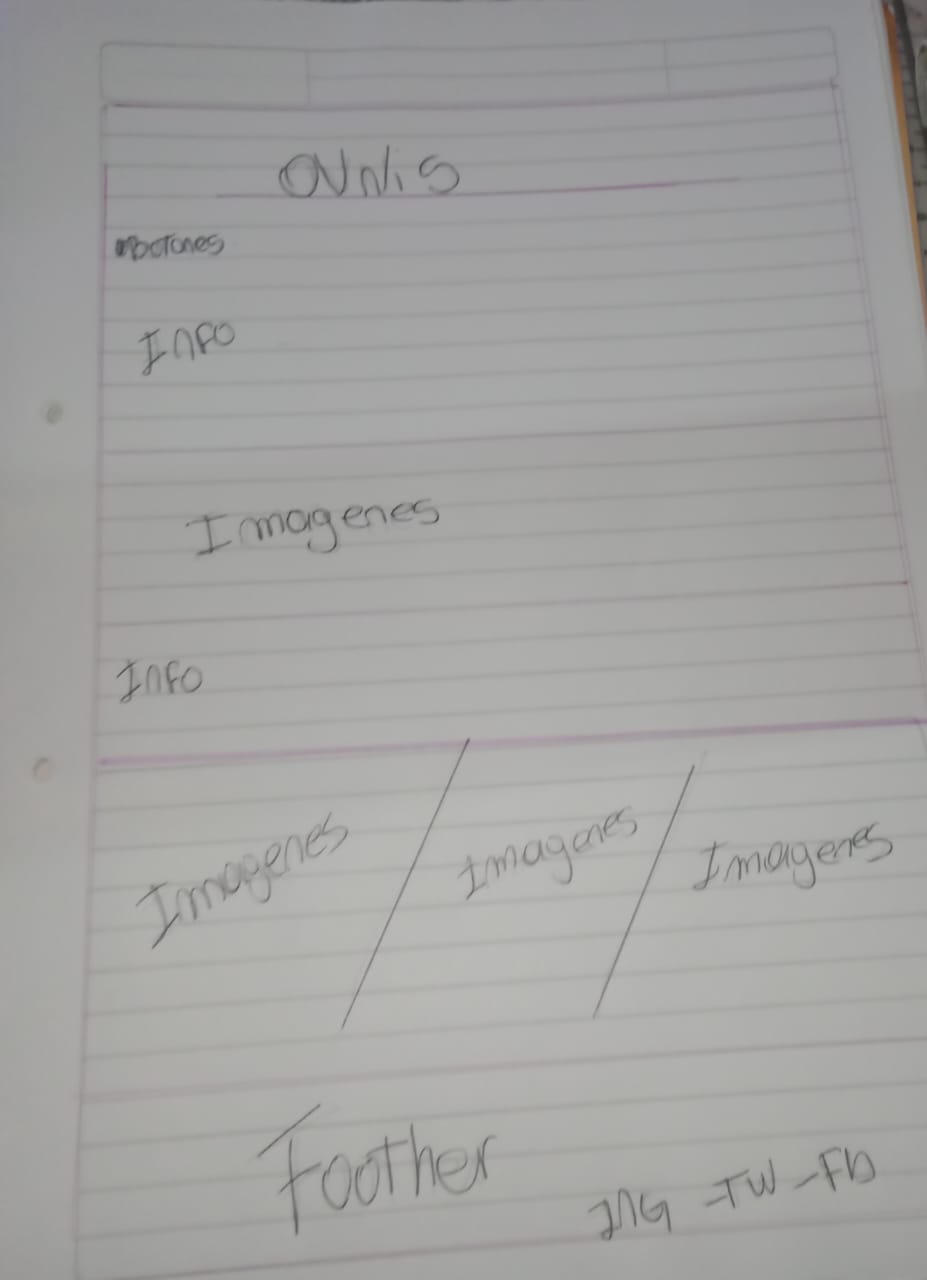 OVNIS
Botones
Info
Imagenes
Info
Imagenes Imagenes Imagenes
Foother
ING - TW - Fb